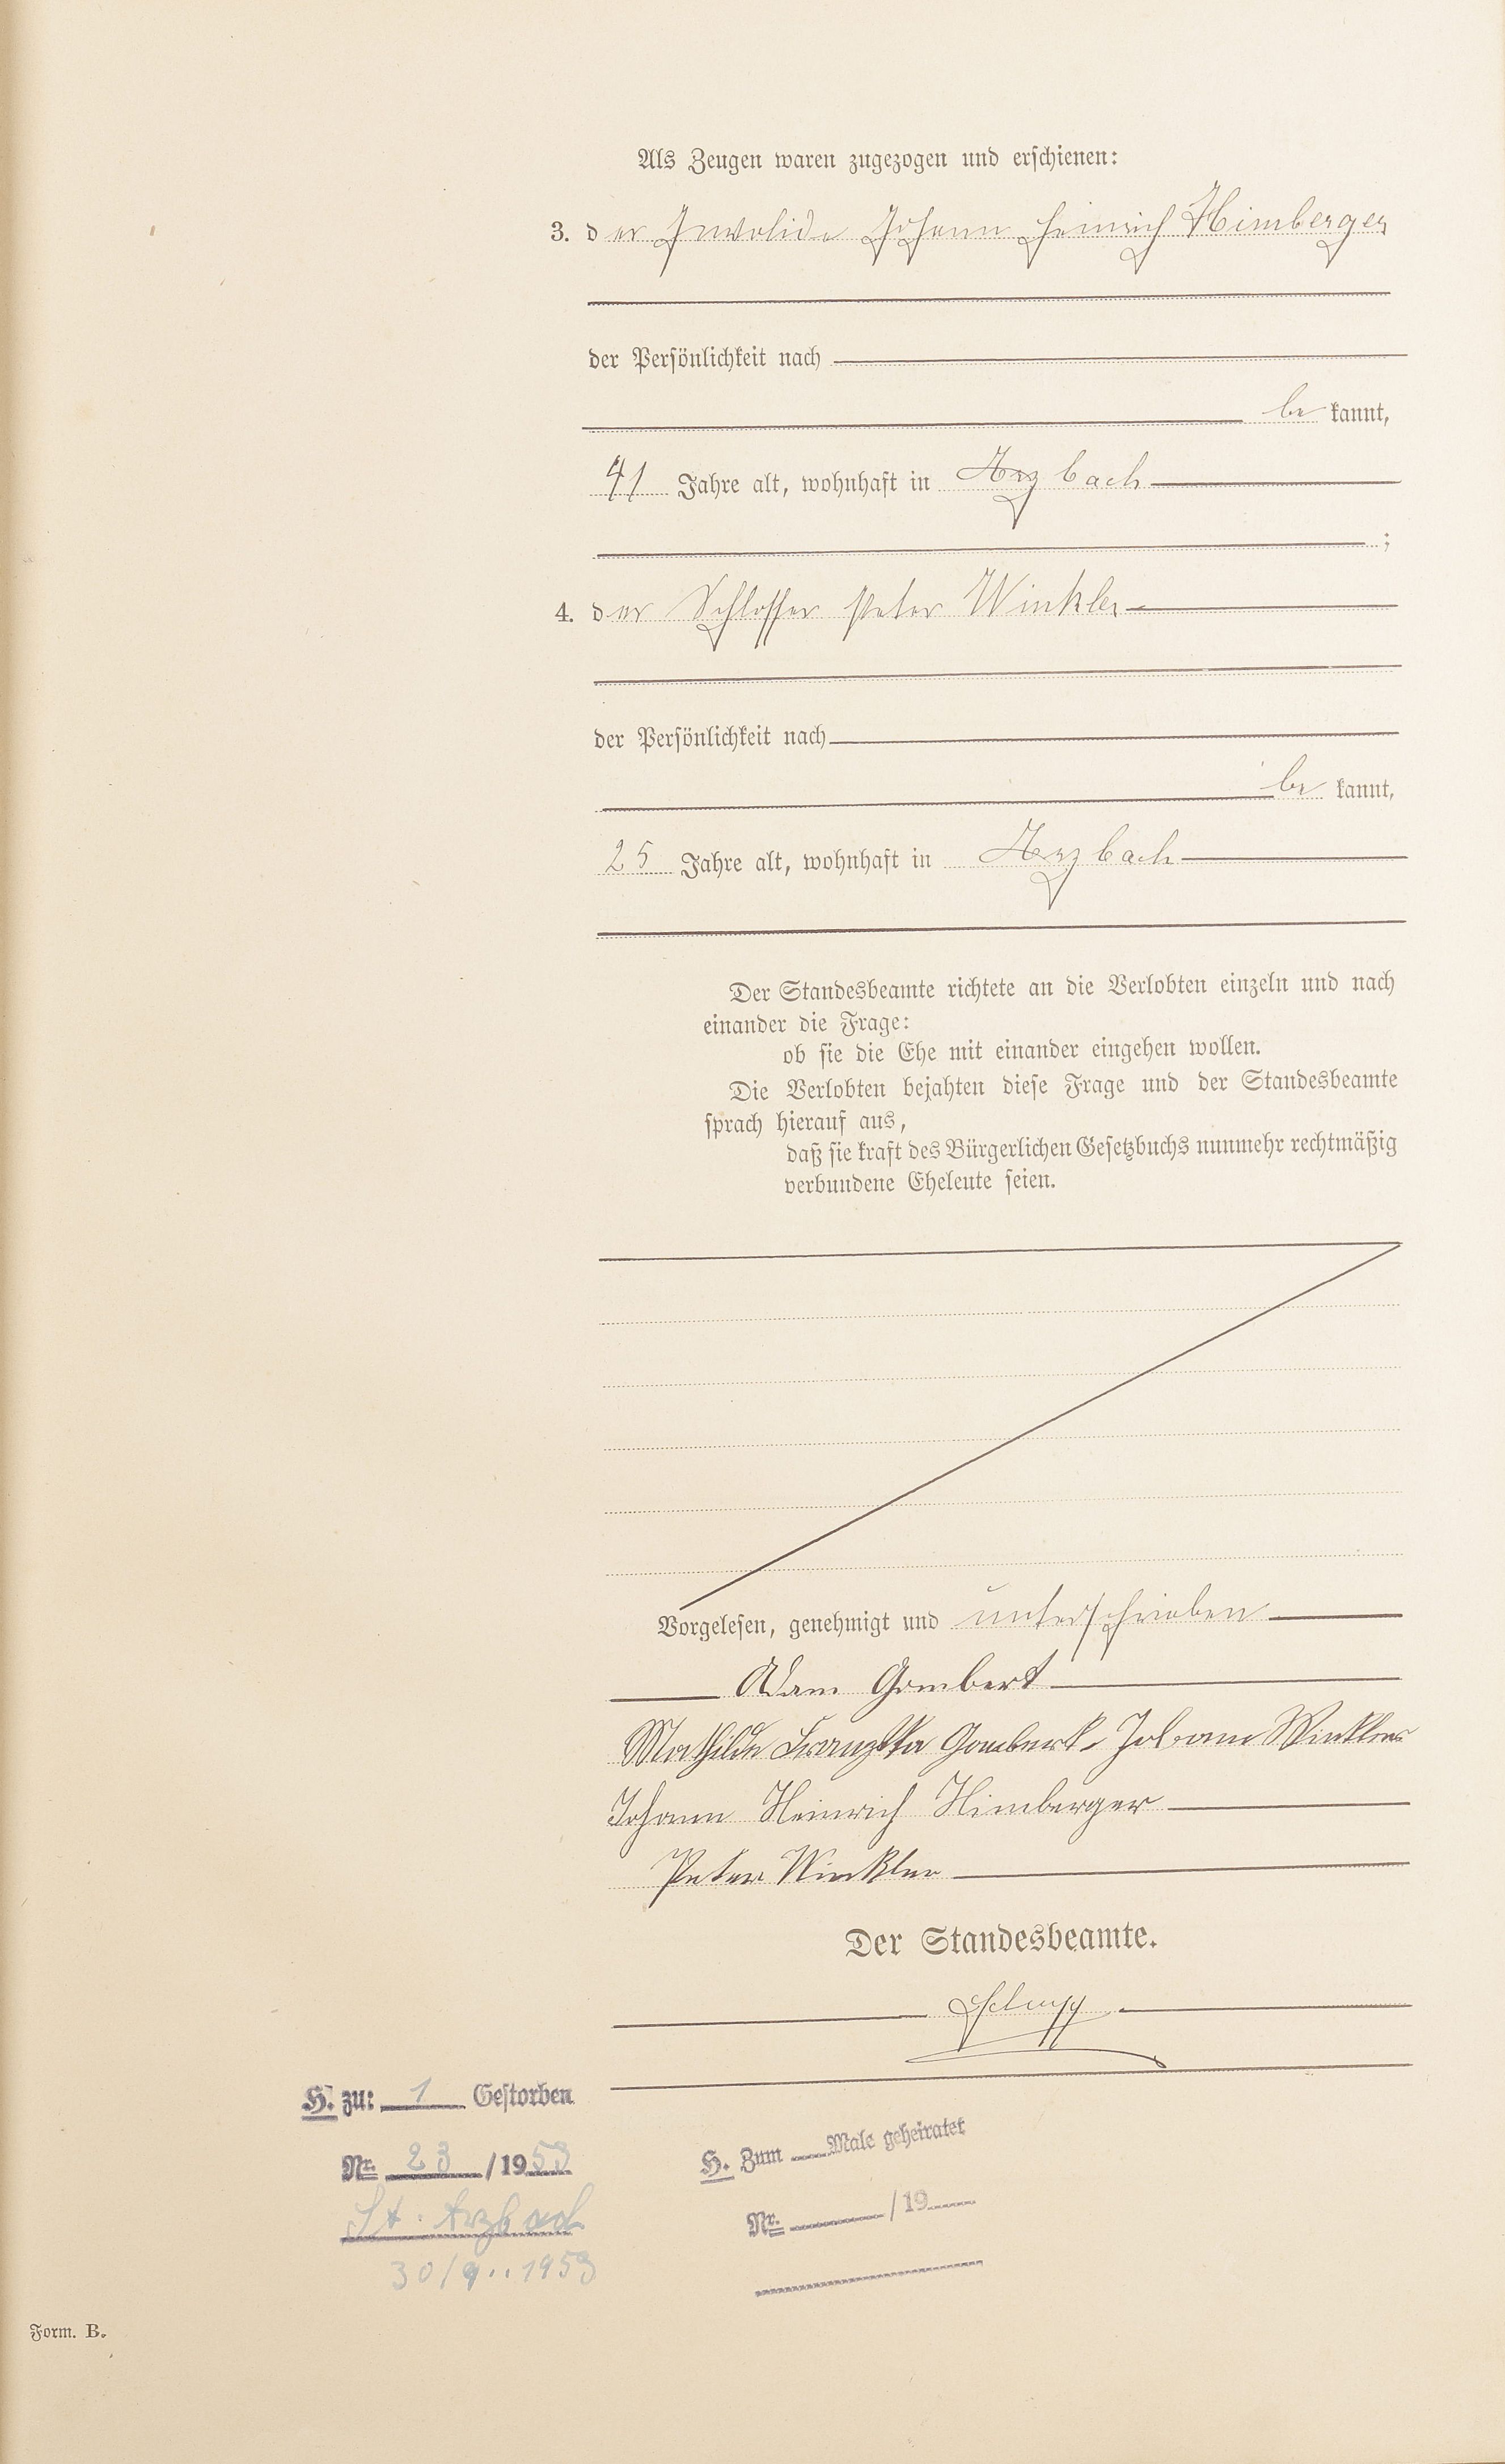 Als Zeugen waren zugezogen und erschienen:
3. der Invalide Johann Heinrich Himberger
der Persönlichkeit nach
be kannt,
41 Jahre alt, wohnhaft in Arzbach
;
4. der Schlosser Peter Winkler
der Persönlichkeit nach
be kannt,
25 Jahre alt, wohnhaft in Arzbach
Der Standesbeamte richtete an die Verlobten einzeln und nach
einander die Frage:
ob sie die Ehe mit einander eingehen wollen.
Die Verlobten bejahten diese Frage und der Standesbeamte
sprach hierauf aus,
daß sie kraft des Bürgerlichen Gesetzbuchs nunmehr rechtmäßig
verbundene Eheleute seien.
Vorgelesen, genehmigt und unterschrieben
Adam Gombert
Mathilde Franziska Gombert
Johann Heinrich Himberger
Peter Winkler
Der Standesbeamte.
H. zu: 1 Gestorben
Nr. 23 / 1953
St. Arzbach
30/9..1953
H. Zum Male geheiratet
Nr. / 19
Form. B.